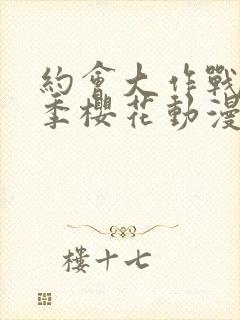 約會大作戰
季櫻花動漫
樓十七